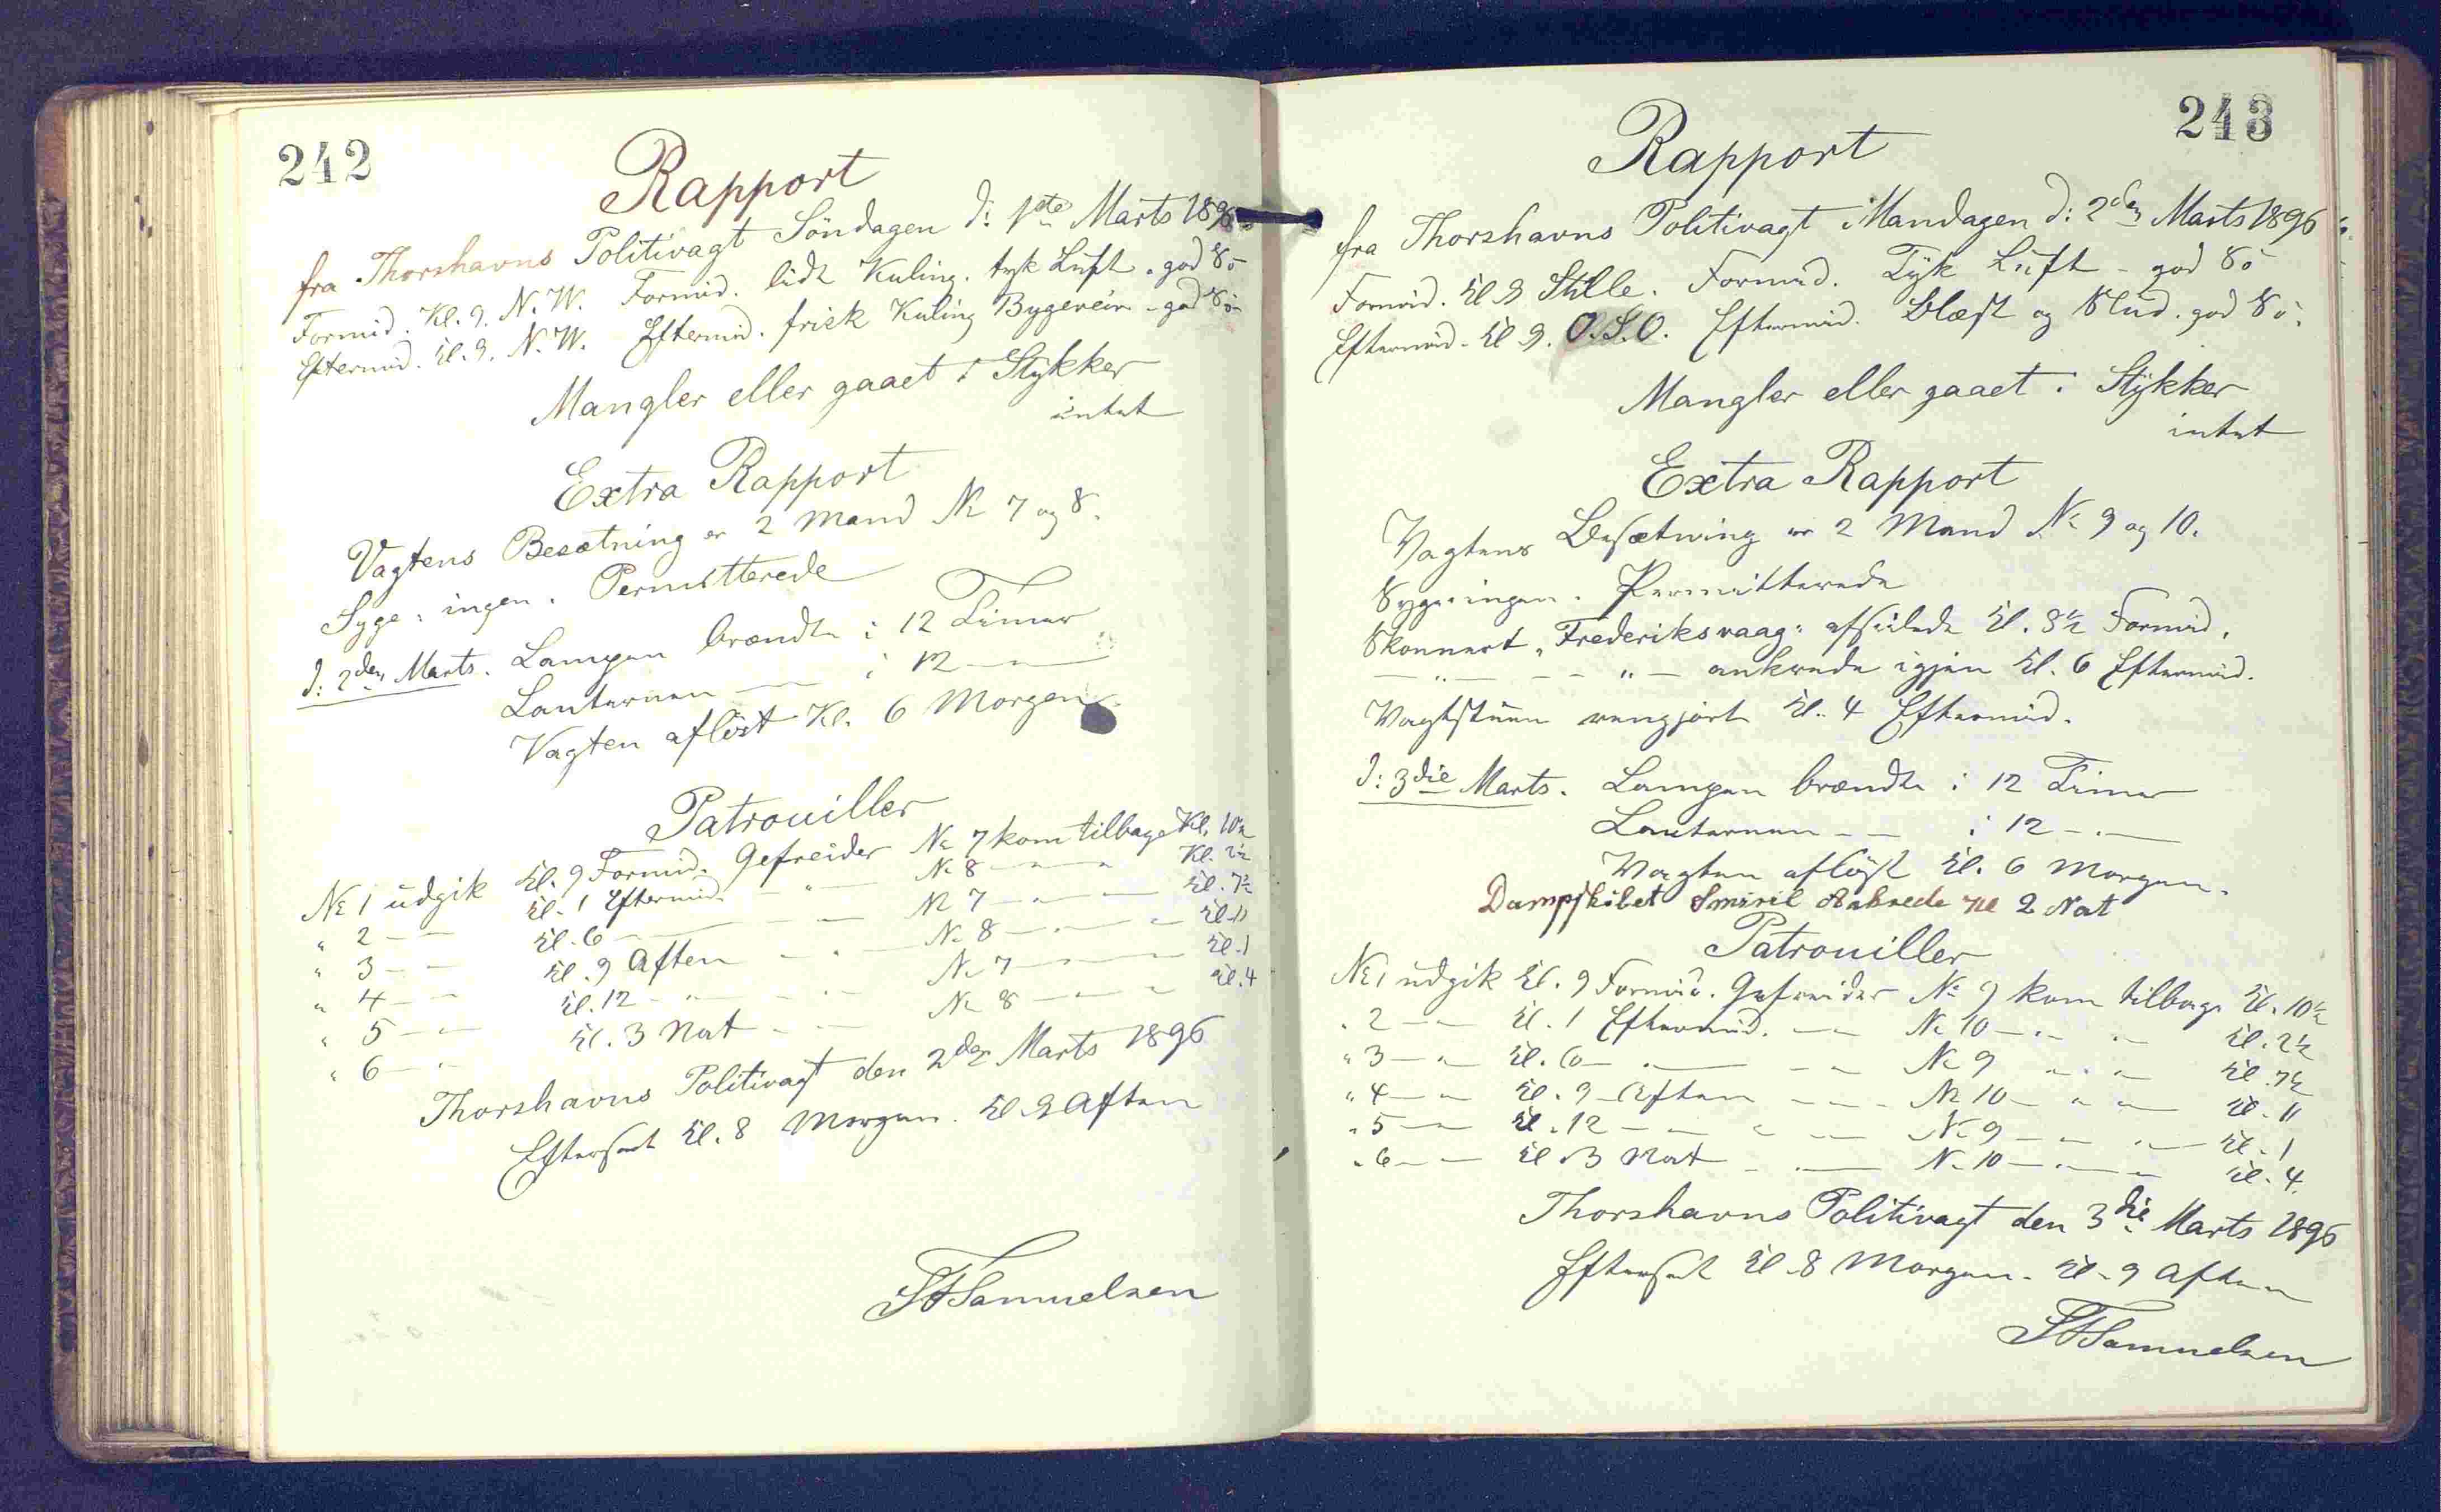 242
Rapport
fra Thorshavns Politivagt Söndagen d: 1ste Marts 1896
Formid. Kl. 9. N.W. Formid. lidt Kuling. tyk Luft. god Sö
Eftermid. Kl. 9. N.W. Eftermid. frisk Kuling Bygeveir - god Sö
Mangler eller gaaet i Stykker
intet
Extra Rapport
Vagtens Besætning er 2 Mand № 7 og 8.
Syge: ingen. Permitterede
d: 2den Marts. Lampen brændte i 12 Timer
Lanternen — i 12 — " —
Vagten aflöst Kl. 6 Morgen
Patrouiller
№ 1 udgik Kl. 9 Formid. Gefreider № 7 kom tilbage Kl. 10½
" 2 — " — Kl. 1 Eftermid. — " — № 8 — " — " Kl. 2½
" 3 — " — Kl. 6 — " — № 7 — " — Kl. 7½
" 4 — " — Kl. 9 Aften — " — № 8 — " — " Kl. 11
" 5 — " — Kl. 12 — " — " — № 7 — " — " Kl. 1
" 6 — " — Kl. 3 Nat — " — № 8 — " — " Kl. 4
Thorshavns Politivagt den 2den Marts 1896
Efterset Kl. 8 Morgen. Kl. 9 Aften
Samuelsen
243
Rapport
fra Thorshavns Politivagt Mandagen d: 2den Marts 1896
Formid. Kl 9 Stille. Formid. Tyk Luft - god Sö
Eftermid. Kl 9. O.S.O. Eftermid. Blæst og Slud. god Sö.
Mangler eller gaaet i Stykker
intet
Extra Rapport
Vagtens Besætning er 2 Mand № 9 og 10.
Syge: ingen. Permitterede
Skonnert "Frederiksvaag" afseilede Kl. 8½ Formid.
— " — — " — ankrede igjen Kl. 6 Eftermid.
Vagtstuen rengjort Kl. 4 Eftermid.
d: 3die Marts. Lampen brændte i 12 Timer
Lanternen — — i 12 — " —
Vagten aflöst Kl. 6 Morgen.
Dampskibet Smiril Ankrede Kl 2 Nat
Patrouiller
№ 1 udgik Kl. 9 Formid. Gefreider № 9 kom tilbage Kl. 10½
" 2 — " — Kl. 1 Eftermid. — " — № 10 — " — " — Kl. 2½
" 3 — " Kl. 6 — " — — " — № 9 " — " — Kl. 7½
" 4 — " — Kl. 9 Aften — " — № 10 — " — " — Kl. 11
" 5 — " — Kl. 12 — " — " — № 9 — " — " — Kl. 1
" 6 — " — Kl. 3 Nat — " — № 10 — " — " — Kl. 4.
Thorshavns Politivagt den 3die Marts 1896
Efterset Kl. 8 Morgen. Kl. 9 Aften
Samuelsen